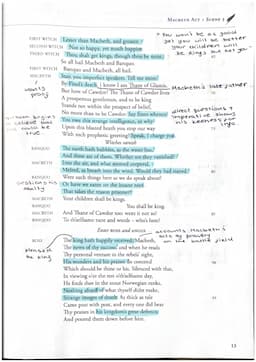 MACBETH ACT 1 SCENE 3
FIRST WITCH Lesser than Macbeth, and greater.
SECOND WITCH Not so happy, yet much happier.
THIRD WITCH Thou shalt get kings, though thou be none:
So all hail Macbeth and Banquo.
FIRST WITCH Banquo and Macbeth, all hail.
MACBETH Stay, you imperfect speakers. Tell me more.
By Finel's death, I know I am Thane of Glamis,
But how of Cawdor? The Thane of Cawdor lives
A prosperous gentleman, and to be king
Stands not within the prospect of belief,
No more than to be Cawdor. Say from whence
You owe this strange intelligence, or why
Upon this blasted heath you stop our way
With such prophetic greeting? Speak, I charge you.
Witches vanish
BANQUO The earth hath bubbles, as the water has,
And these are of them. Whither are they vanished?
MACBETH Into the air, and what seemed corporal,
Melted, as breath into the wind. Would they had stayed.
BANQUO Were such things here as we do speak about?
Or have we eaten on the insane root
That takes the reason prisoner?
MACBETH Your children shall be kings.
BANQUO You shall be king.
MACBETH And Thane of Cawdor too: went it not so?
BANQUO To th'selfsame tune and words – who's here?
Enter ROSS and ANGUS
ROSS The king hath happily received, Macbeth,
The news of thy success; and when he reads
Thy personal venture in the rebels' sight,
His wonders and his praises do contend
Which should be thine or his. Silenced with that,
In viewing o'er the rest o'th'selfsame day,
He finds thee in the stout Norwegian ranks,
Nothing afeard of what thyself didst make,
Strange images of death. As thick as tale
Came post with post, and every one did bear
Thy praises in his kingdom's great defence,
And poured them down before him.
wants
proof
Macbeth's late father
direct questions +
imperative shows
his
life
questions his
reality
accounts Macbeth's
on the battle field
king
13